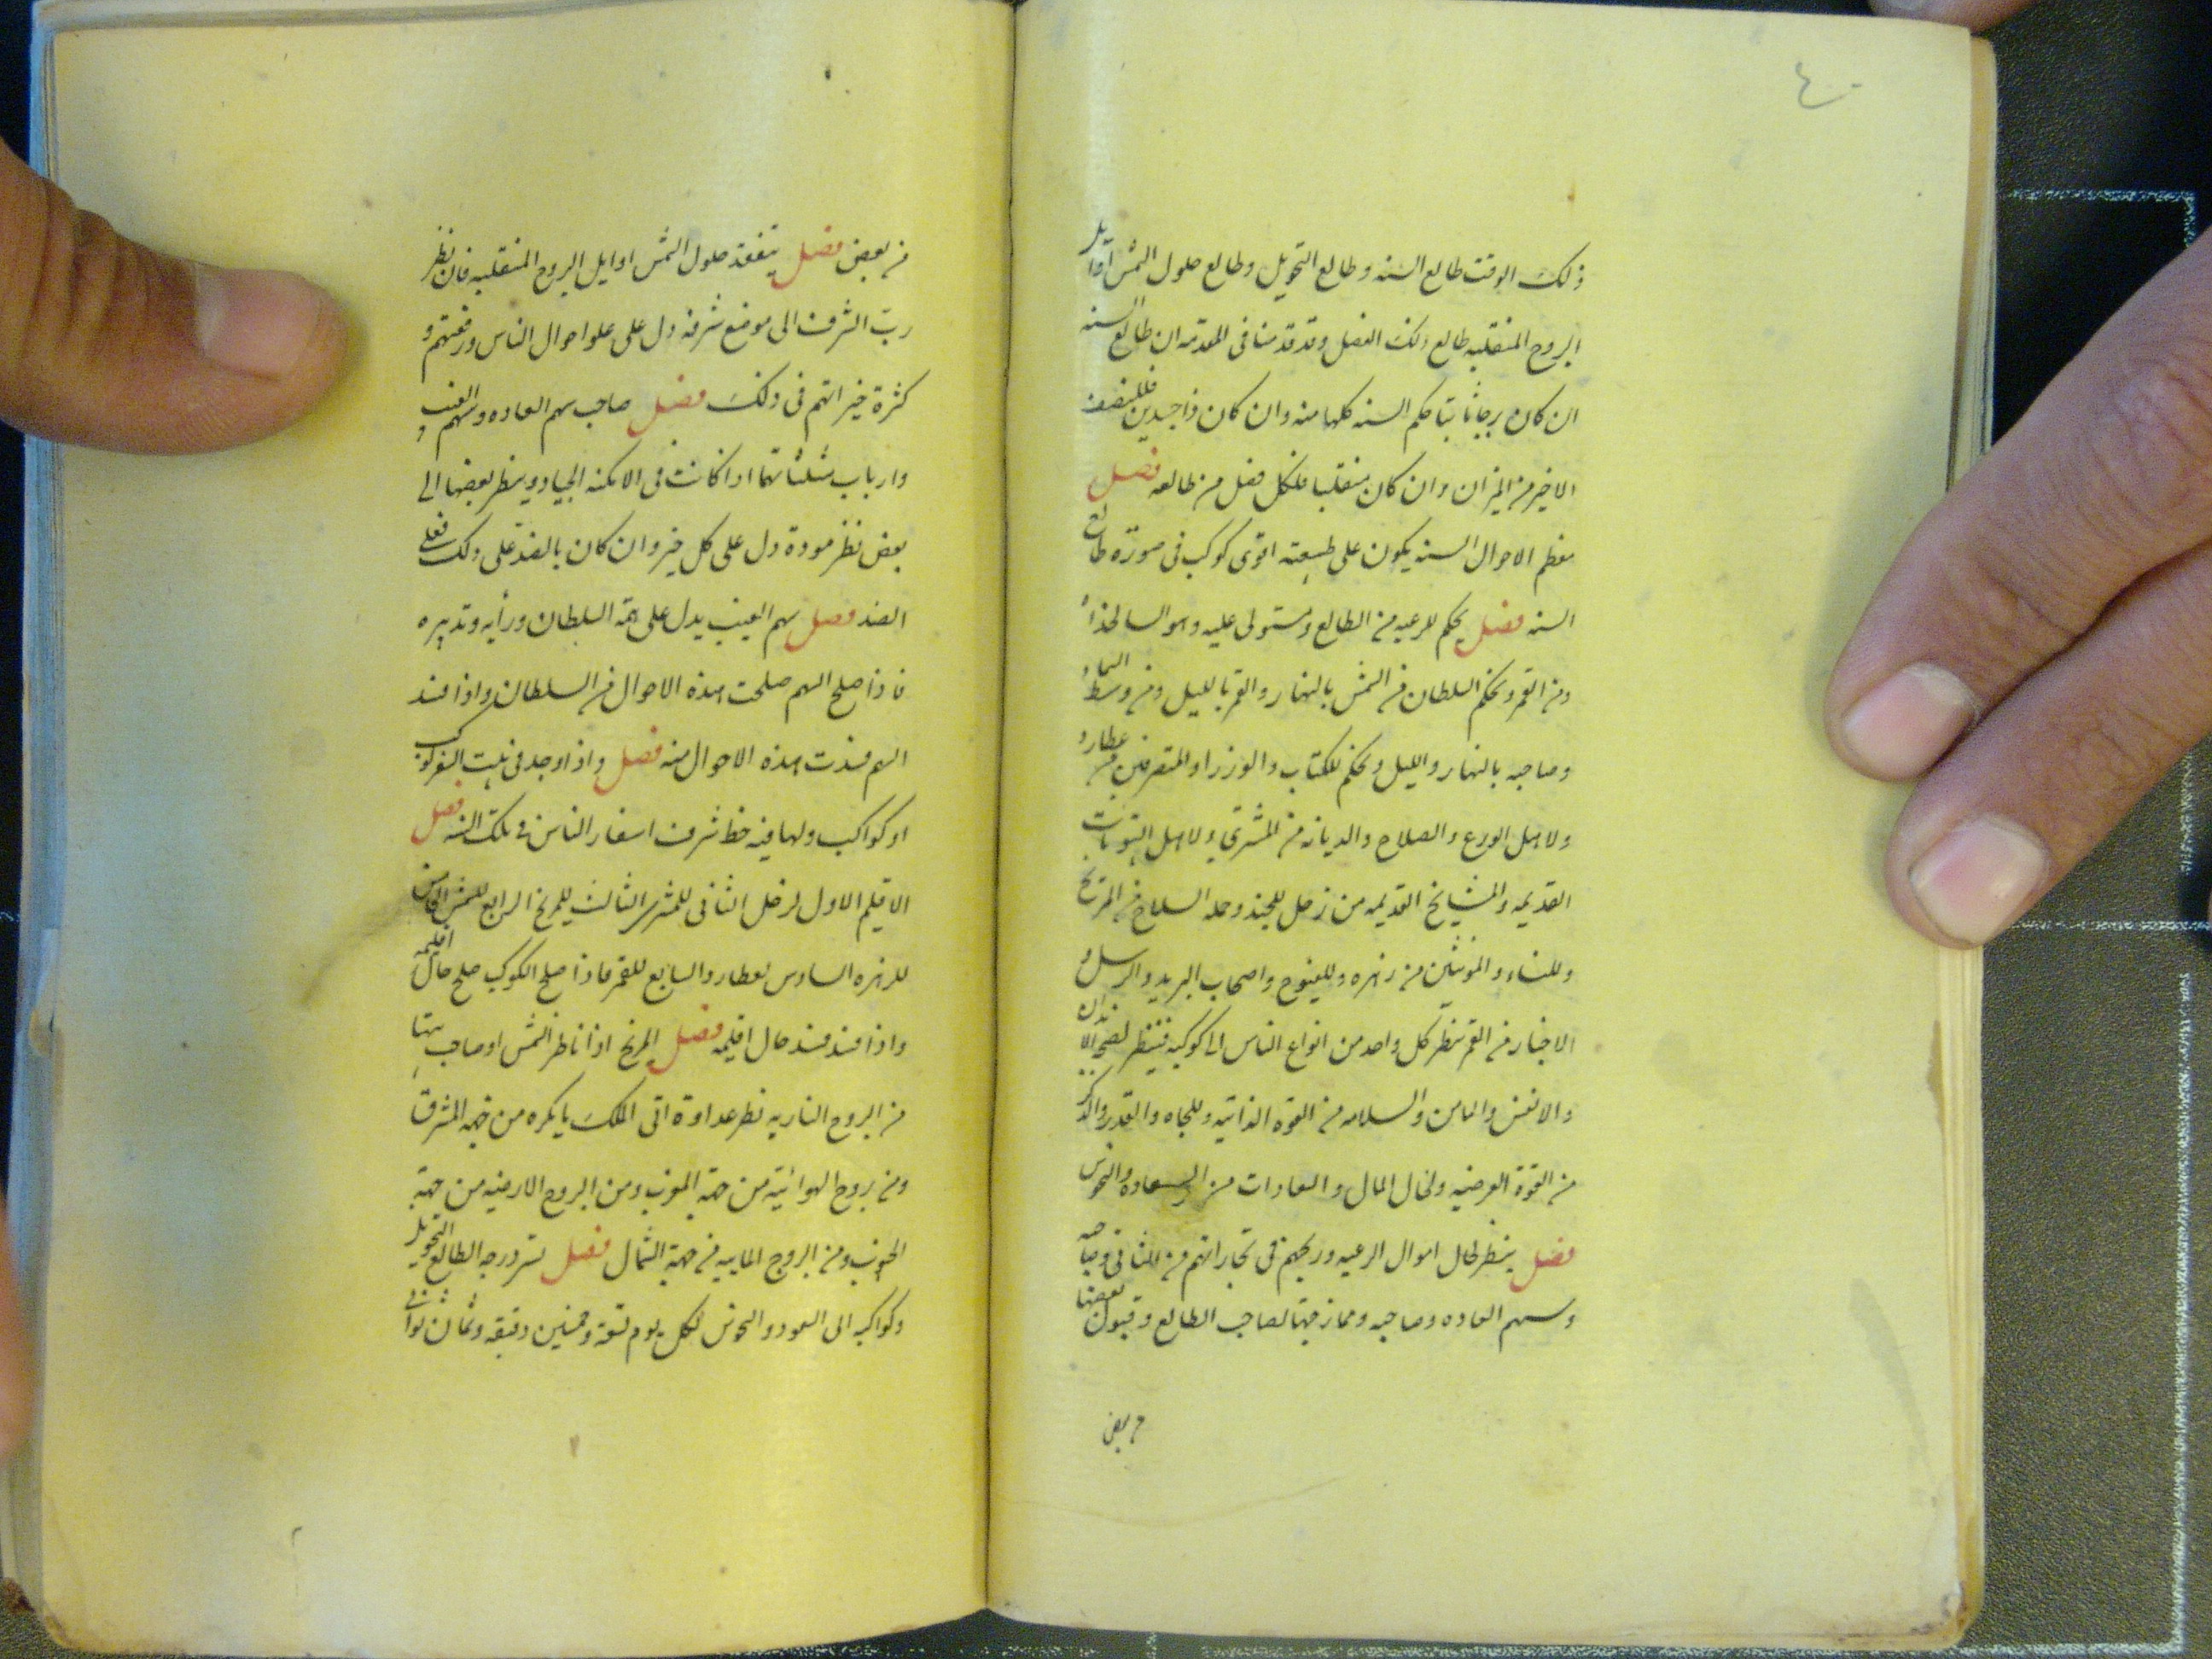 ٤٠
ذلك الوقت طالع السنه وطالع التحويل وطالع حلول الشمس اوايل
البروج المنقلبه طالع ذلك الفصل وقد قدمنا فى المقدمه ان طالع السنه
ان كان برجا ثابتا حكم السنه كلها منه وان كان ذا جسدين فللنصف
الاخير من الميزان وان كان منقلبا فلكل فصل من طالعه فصل
معظم الاحوال السنه يكون على طبيعته اقوى كوكب فى صورة طالع
السنه فصل يحكم للرعيه من الطالع ومستولى عليه وهو السالخذاه
ومن القمر ويحكم السلطان من الشمس بالنهار والقمر بالليل ومن وسط السماء
وصاحبه بالنهار والليل ويحكم للكتاب والوزراء والمتصرفين من عطارد
ولاهل الورع والصلاح والديانه من المشترى ولاهل البيوتات
القديمه والمشايخ القديمه من زحل للجند وحمله السلاح من المريخ
وللنساء والمونثين من زهره وللفيوج واصحاب البريد والرسل و
الاخبار من القمر ينظر كل واحد من انواع الناس الى كوكبه فينظر لصحة الابدان
والانفس والمامن والسلامه من القوة الذاتيه وللجاه والقدر والذكر
من القوة العرضيه ولحال المال والسعادات من السعادة والنحوس
فصل ينظر لحال اموال الرعيه وربحهم فى تجاراتهم من الثانى وصاحبه
وسهم السعاده وصاحبه وممازجتها لصاحب الطالع وقبول بعضها
من بعض
من بعض فصل يتفقد حلول الشمس اوايل البروج المنقلبه فان نظر
رب الشرف الى موضع شرفه دل على علو احوال الناس ورفعتهم و
كثرة خيراتهم فى ذلك فصل صاحب سهم السعاده وسهم الغيب
وارباب مثلثاتهما اذا كانت فى الامكنه الجياد وينظر بعضها الى
بعض نظر مودة دل على كل خير وان كان بالضد على ذلك فعلى
الضد فصل سهم الغيب يدل على همة السلطان ورأيه وتدبيره
فاذا صلح السهم صلحت هذه الاحوال من السلطان واذا فسد
السهم فسدت هذه الاحوال منه فصل واذا وجد فى بيت السفر كوكب
او كواكب ولها فيه حظ شرف اسفار الناس فى تلك السنه فصل
الاقليم الاول لزحل الثانى للمشترى الثالث للمريخ الرابع للشمس الخامس
للزهره السادس لعطارد السابع للقمر فاذا صلح الكوكب صلح حال اقليمه
واذا فسد فسد حال اقليمه فصل المريخ اذا ناظر الشمس او صاحب بيتها
من البروج الناريه نظر عداوة اتى الملك ما يكره من جهة المشرق
ومن بروج الهوائية من جهة المغرب ومن البروج الارضيه من جهة
الجنوب ومن البروج المائيه من جهة الشمال فصل تسير درجه الطالع التحويل
وكواكبه الى السعود والنحوس لكل يوم تسعة وخمسين دقيقه وثمان ثوانى